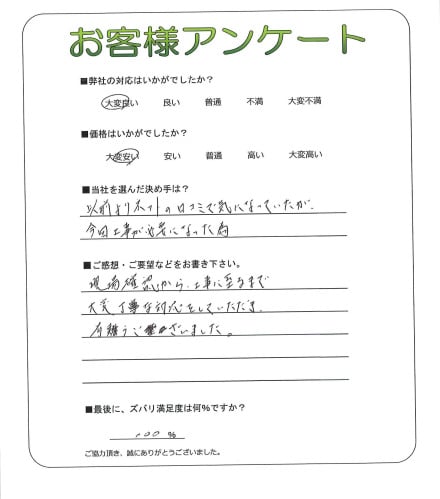 お客様アンケート
■弊社の対応はいかがでしたか？
大変良い 良い 普通 不満 大変不満
■価格はいかがでしたか？
大変安い 安い 普通 高い 大変高い
■当社を選んだ決め手は？
以前よりネットの口コミで気になっていたが、
今回工事が必要になった為
■ご感想・ご要望などをお書き下さい。
現場確認から、工事に至るまで
大変丁寧な対応をしていただき、
有難うございました。
■最後に、ズバリ満足度は何%ですか？
100 %
ご協力頂き、誠にありがとうございました。